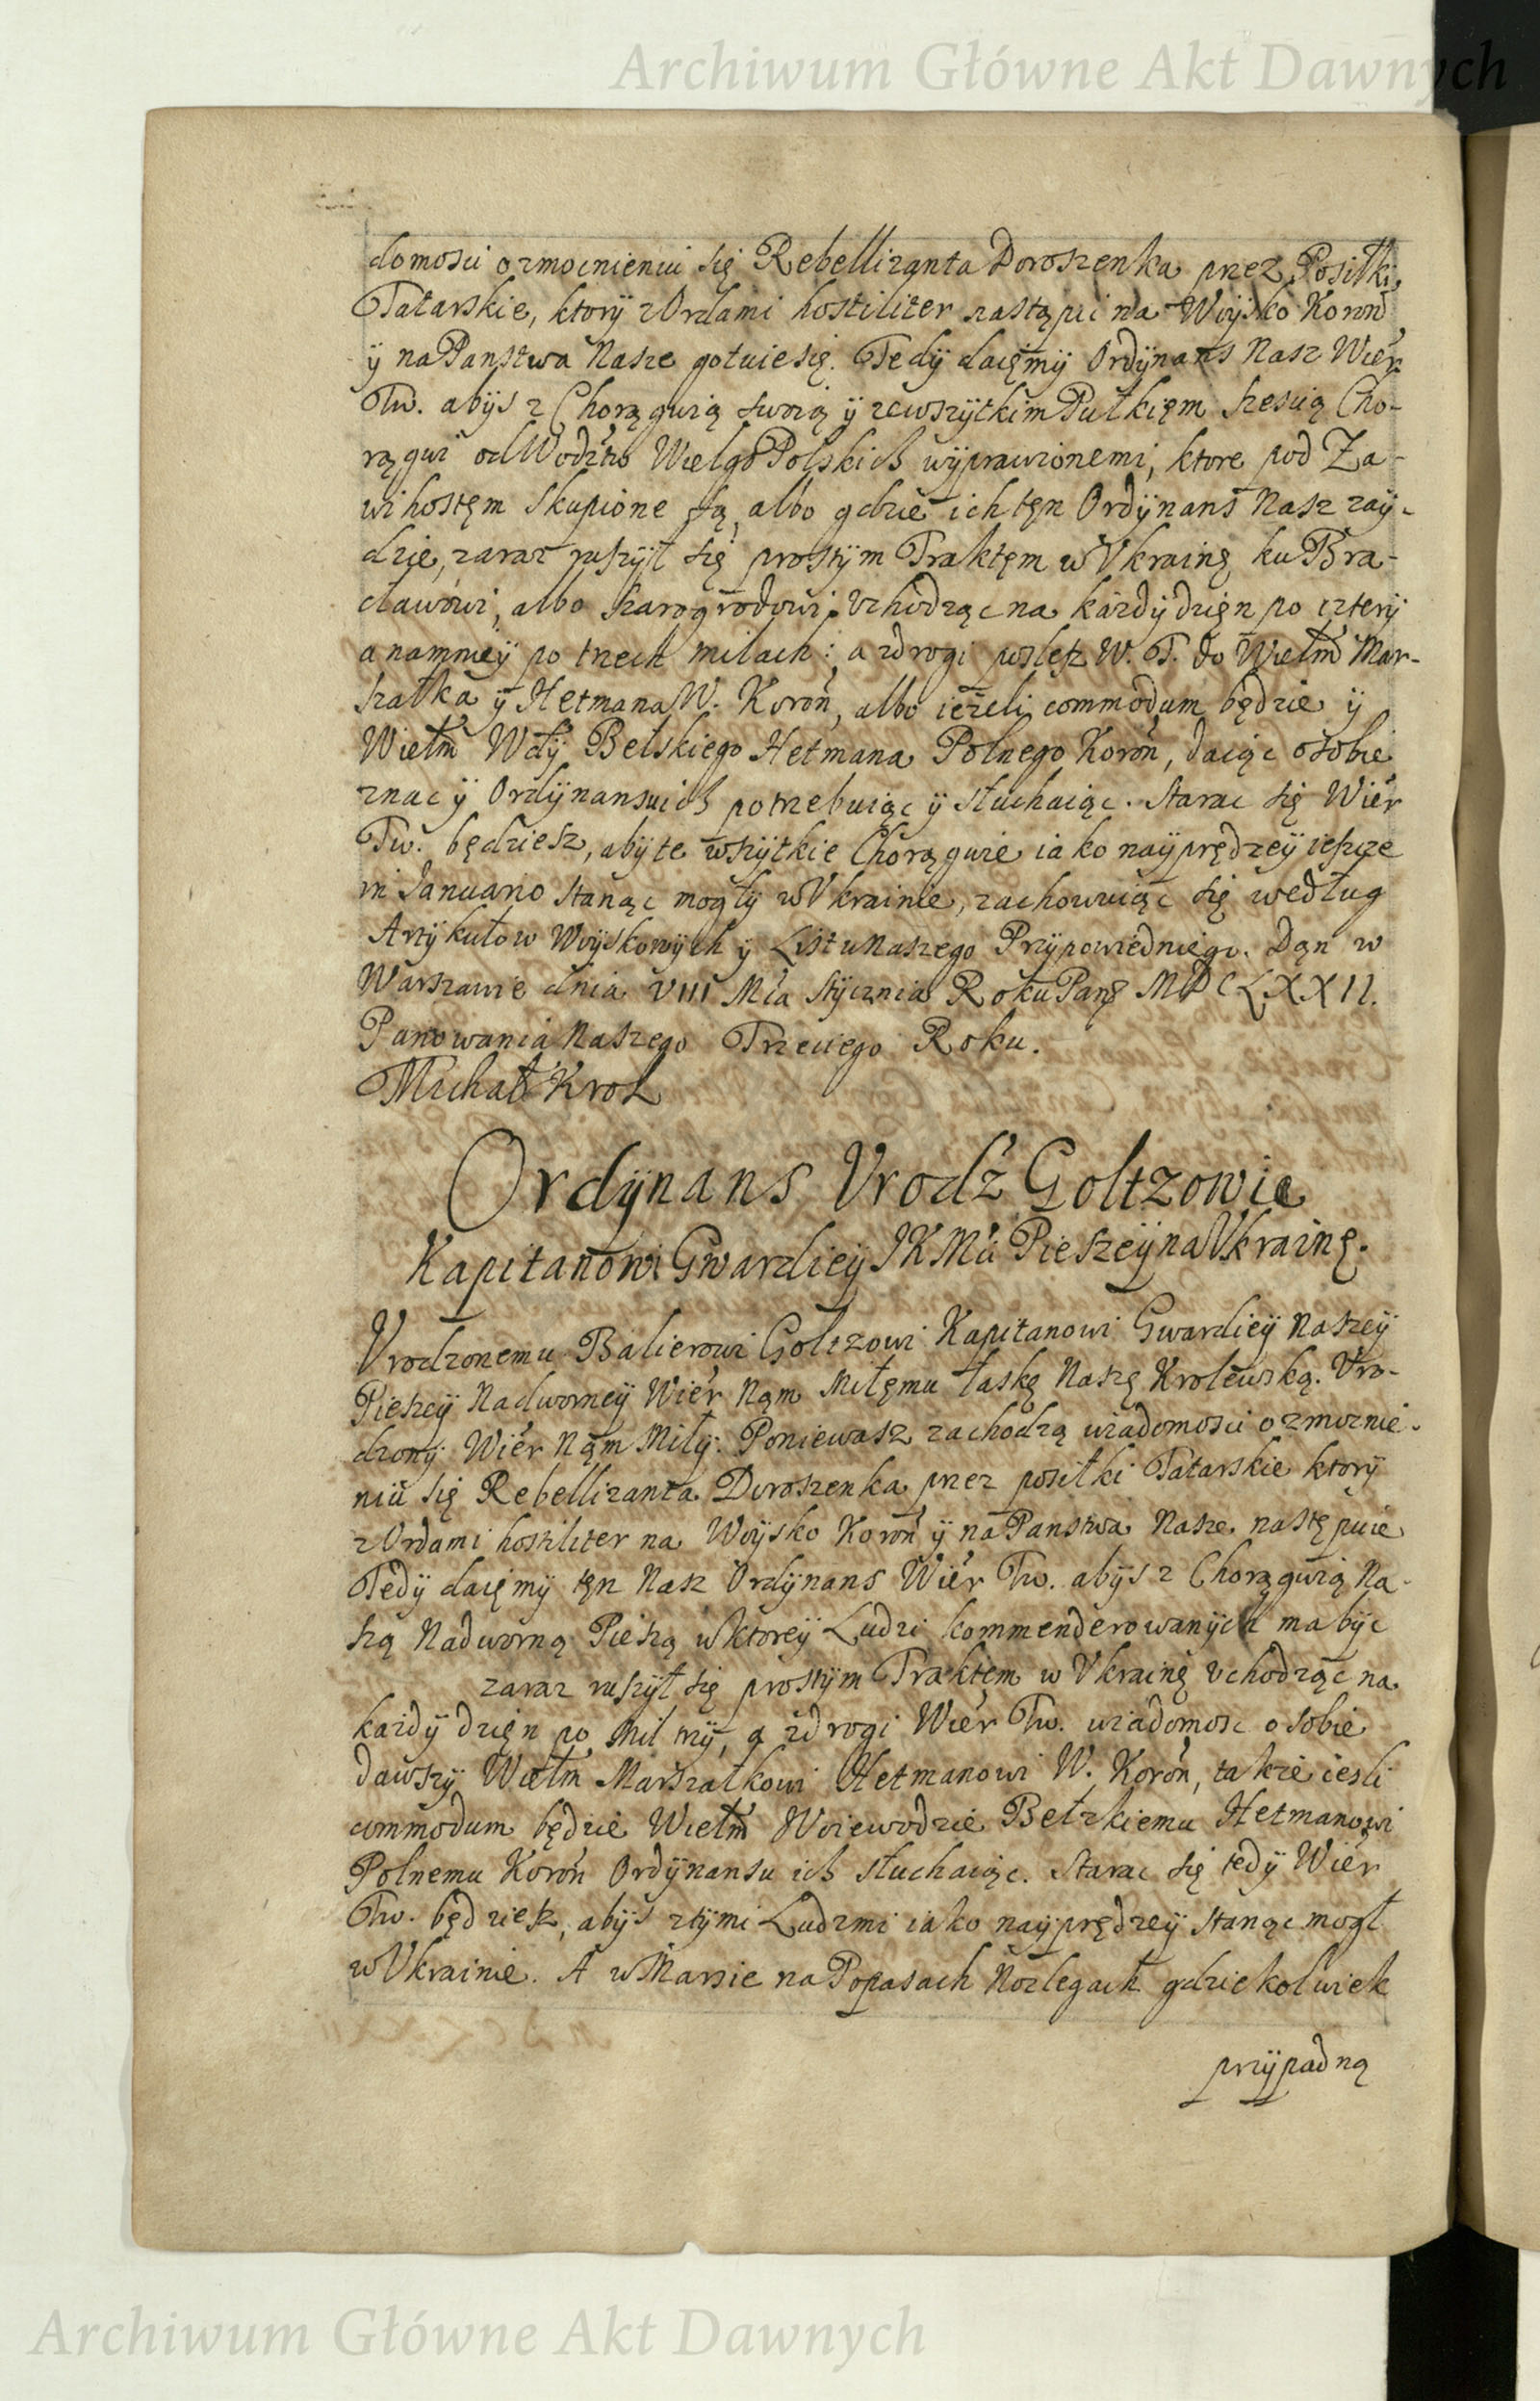 Archiwum Główne Akt Dawnych
domosci o zmocnieniu się Rebellizanta Doroszenka przez Posiłki
Tatarskie, ktorÿ z Ordami hostiliter nastąpic na Woÿsko Koronē
ÿ na Panstwa Nasze gotuie się. Tedÿ daięmÿ Ordÿnans Nasz Wier
Tw. abÿs z Chorągwią swoią ÿ ze wszÿtkim Pułkięm szescią Cho-
rągwi od Wodztw WielgoPolskich wÿprawionemi, ktore pod Za-
wihostęm skupione są, albo gdzie ich tęn Ordÿnans Nasz zaÿ-
dzie, zaraz ruszÿł się prostÿm Traktęm w Vkrainę ku Bra-
cławowi, albo Szarogrodowi, Vchodząc na kazdÿ dzięn po czterÿ
a namnieÿ po trzech milach: a zdrogi poslesz W. T. do Wielm̄ Mar-
szałka ÿ Hetmana W. Koroń, albo iezeli commodum będzie ÿ
Wielm̄ Wdÿ Bełskiego Hetmana Polnego Koroń, daiąc o sobie
znac ÿ Ordÿnansu ich potrzebuiąc ÿ słuchaiąc. Starac się Wier
Tw. będziesz, abÿ te wszÿtkie Chorągwie iako naÿprędzeÿ ieszcze
in Januario stanąc mogłÿ w Vkrainie, zachowuiąc się według
Artÿkułow Woÿskowÿch ÿ Listu Naszego Przÿpowiedniego. Dąn w
Warszawie dnia VIII Mca Stÿcznia Roku Pang MDCLXXII.
Panowania Naszego Trzeciego Roku.
Michał Krol
Ordÿnans Vrodź Goltzowi
Kapitanowi Gwardieÿ JKMci Pieszeÿ na Vkrainę.
Vrodzonemu Balierowi Goltzowi Kapitanowi Gwardieÿ Naszeÿ
Pieszeÿ Nadworneÿ Wier Nąm Miłęmu łaskę Naszę Krolewską. Vro-
dzonÿ Wier Nąm Miłÿ. Poniewasz zachodzą wiadomosci o zmocnie-
niu się Rebellizanta Doroszenka przez posiłki Tatarskie ktorÿ
z Ordami hostiliter na Woÿsko Koroń ÿ na Panstwa Nasze następuie
Tedÿ daięmÿ tęn Nasz Ordÿnans Wier Tw. abÿs z Chorągwią Na-
szą Nadworną Pieszą w ktoreÿ Ludzi kommenderowanÿch ma bÿc
zaraz ruszÿł się prostÿm Traktęm w Vkrainę vchodząc na
kazdÿ dzięn po Mil trzÿ, a zdrogi Wier Tw. wiadomosc o sobie
dawszÿ Wielm̄ Marszałkowi Hetmanowi W. Koroń, takze iesli
commodum będzie Wielm̄ Woiewodzie Bełzkiemu Hetmanowi
Polnemu Koroń Ordÿnansu ich słuchaiąc. Starac się tedÿ Wier
Tw. będziesz, abÿs z tÿmi Ludzmi iako naÿprędzeÿ stanąc mogł
w Vkrainie. A w Marsie na Popasach Noclegach gdziekolwiek
przÿpadną
Archiwum Główne Akt Dawnych